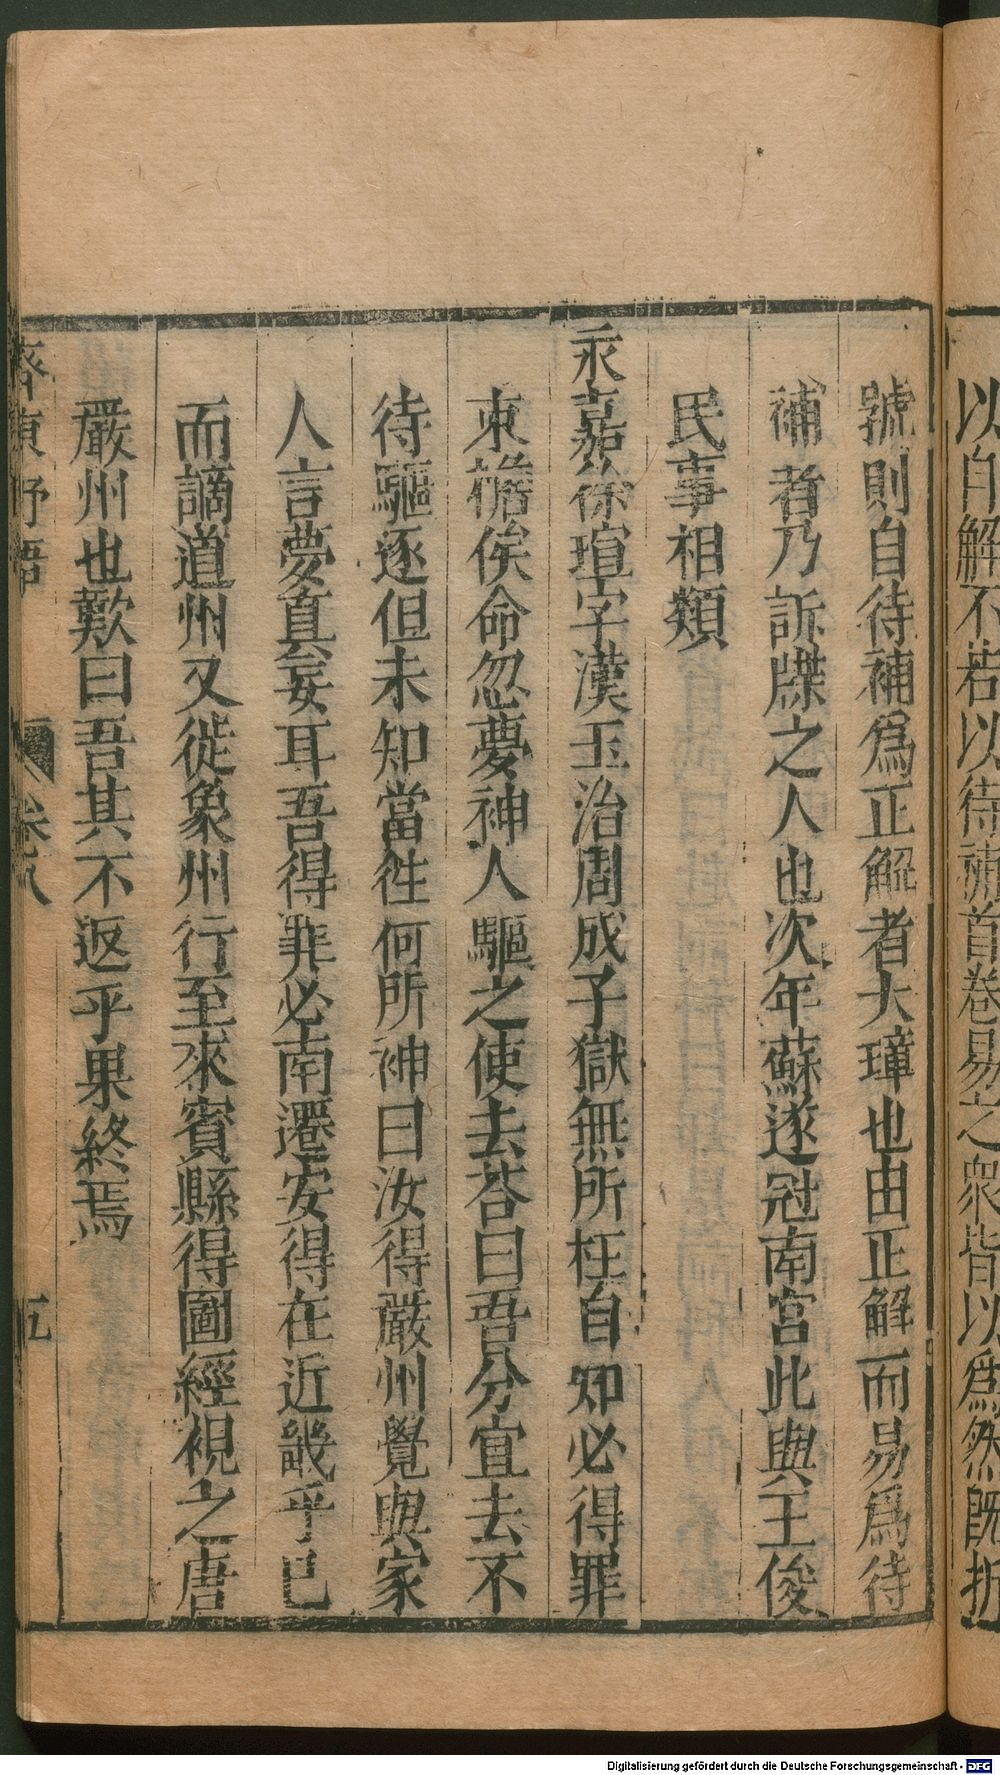 以自解不若以待補首卷易之衆皆以爲然既折
號則自待補爲正解者大璋也由正解而易爲待
補者乃訴牒之人也次年蘇遂冠南宮此與王俊
民事相類
永嘉徐瑄字漢玉治周成子獄無所枉自知必得罪
東檐俟命忽夢神人驅之使去荅曰吾分宜去不
待驅逐但未知當徃何所神曰汝得嚴州覺與家
人言夢真妄耳吾得罪必南遷安得在近畿乎已
而謫道州又徙象州行至來賓縣得圖經視之唐
嚴州也歎曰吾其不返乎果終焉
齊東野語 卷八 五
Digitalisierung gefördert durch die Deutsche Forschungsgemeinschaft - DFG